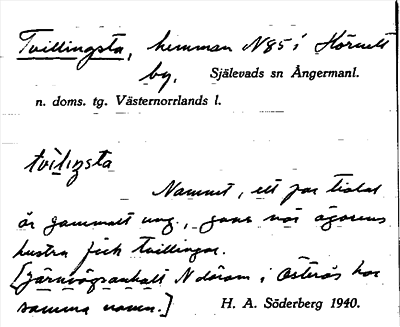 Tvillingsta, hemman N85 i Hörnett
by. Själevads sn Ångermanl.
n. doms. tg. Västernorrlands l.
tvìliŋsta
Namnet, ett par tiotal
år gammalt ung., gavs när ägarens
hustru fick tvillingar.
[Järnvägsanhalt N därom i Österås har
samma namn.]
H. A. Söderberg 1940.